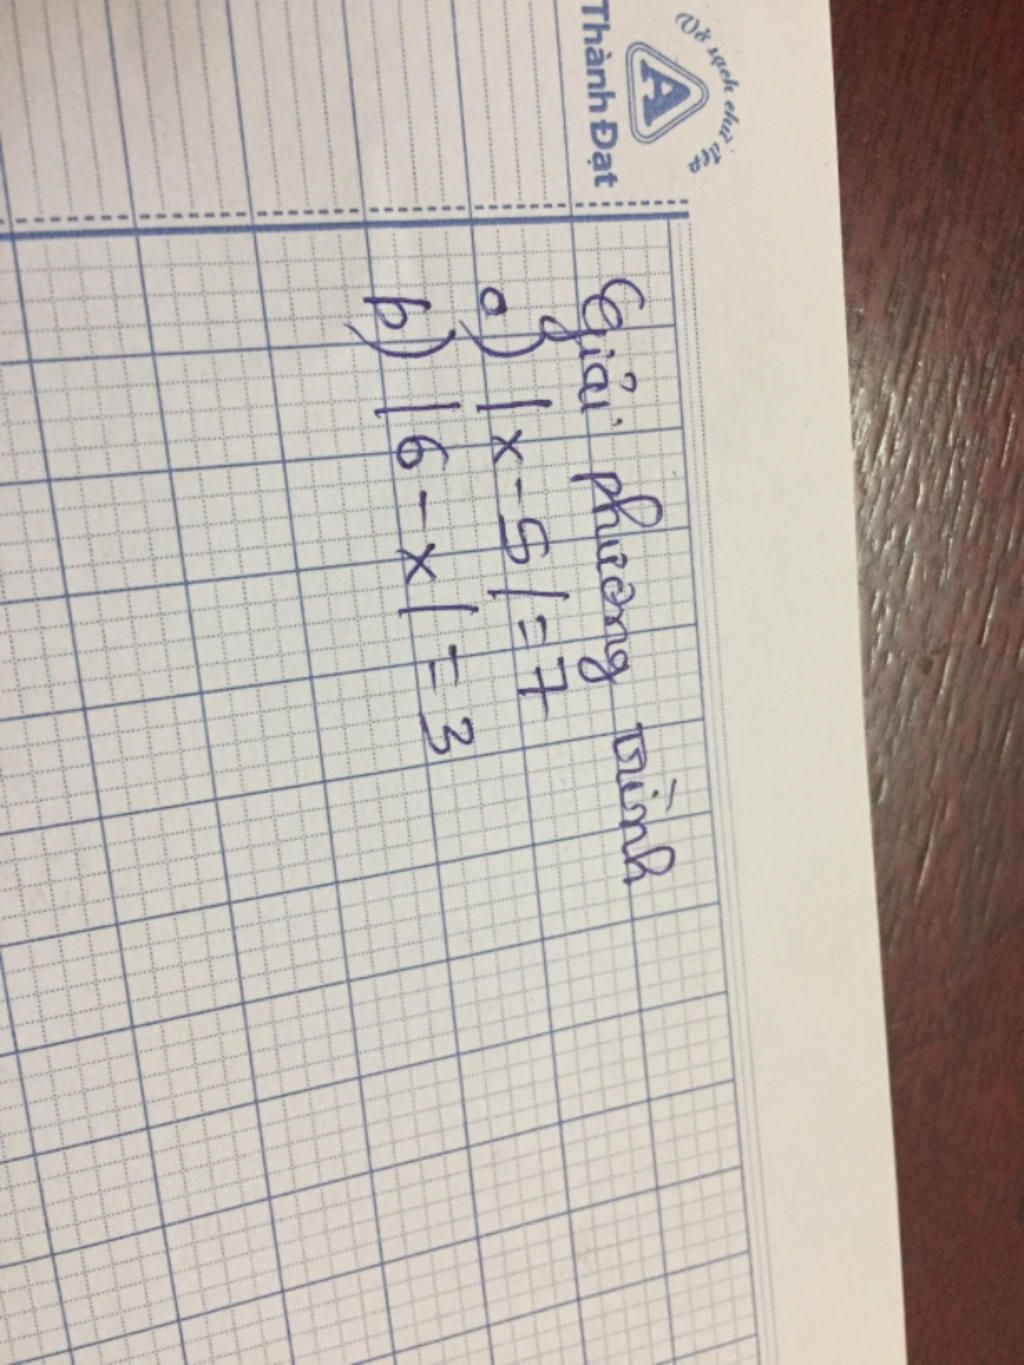 Vở sạch chữ đẹp
A
Thành Đạt
Giải phương trình
a) |x-5|=7
b) |6-x|=3